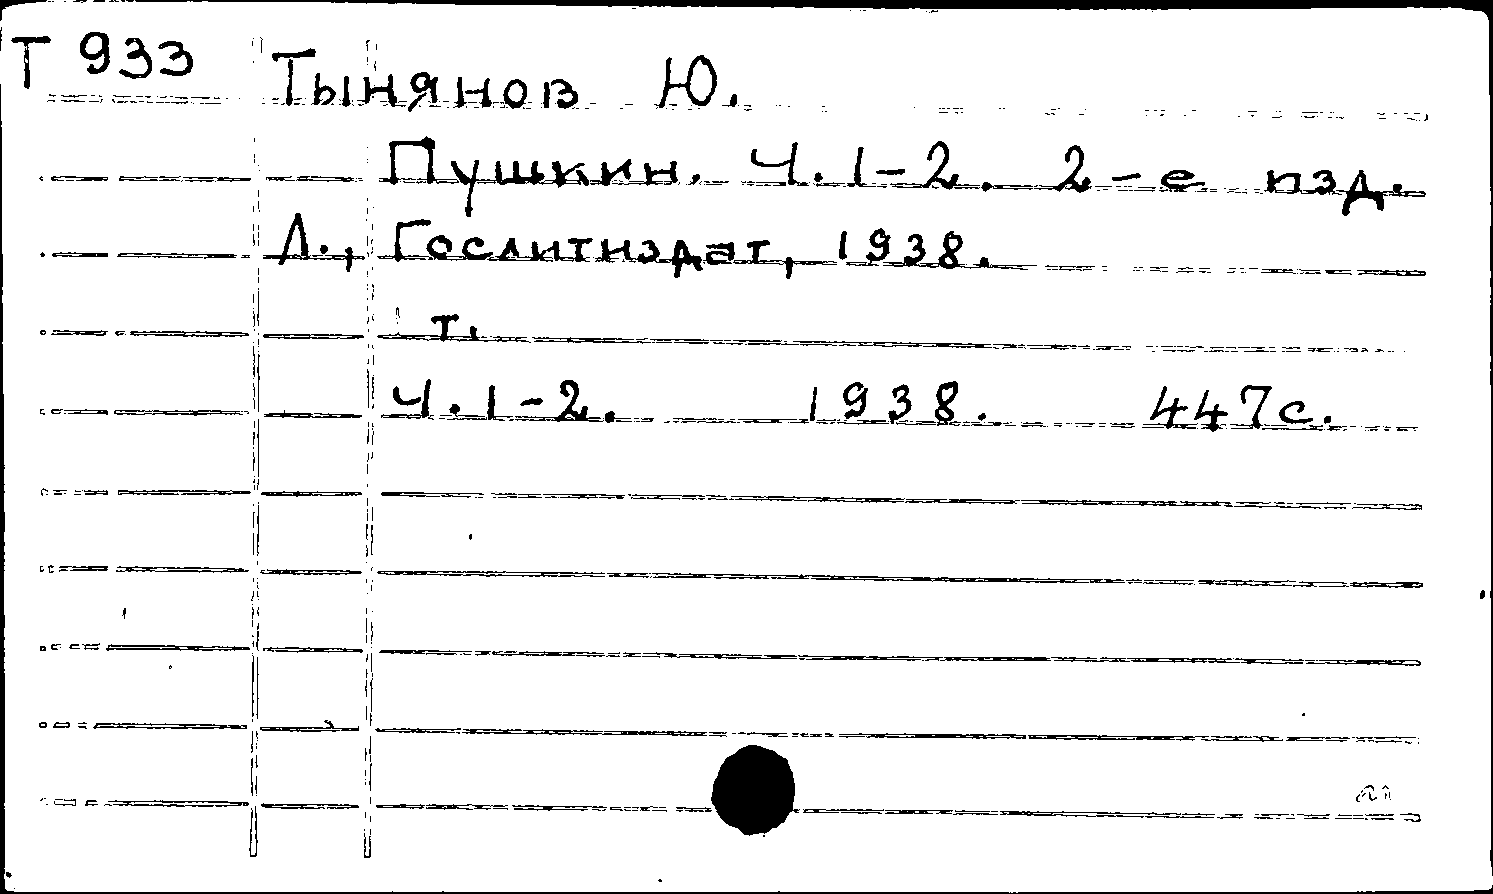 Т 933
Тынянов Ю.
Пушкин. Ч.1-2. 2-е изд.
Л., Гослитиздат, 1938.
1 т.
Ч.1-2. 1938. 447с.